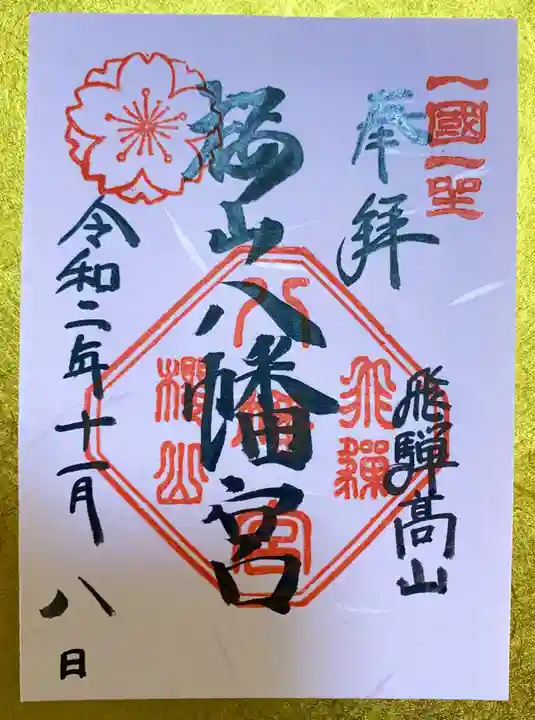 一國一社
奉拝
飛騨高山
桜山八幡宮
飛驒
八幡宮
櫻山
令和二年十一月八日